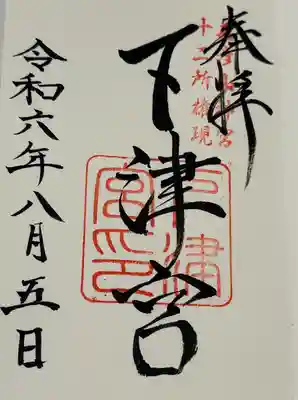 奉拝
十二所権現
下津宮
令和六年八月五日